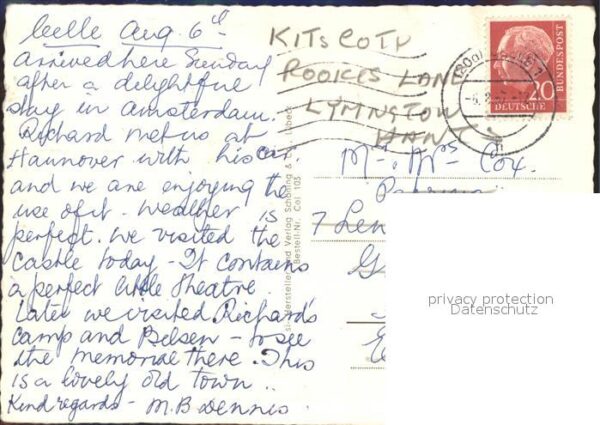 Celle Aug. 6th
Arrived here Sunday
after a delightful
stay in Amsterdam.
Richard met us at
Hannover with his car.
and we are enjoying the
use of it - Weather is
perfect. We visited the
Castle today - It contains
a perfect little theatre.
Later we visited Richard's
camp and Belsen - to see
the memorial there. This
is a lovely old town ..
Kind regards - M. B. Dennis.
Hersteller und Verlag Schöning & Co., Lübeck
Bestell-Nr. Cel. 103
KITS COTY
ROOKES LANE
LYMINGTON
HANTS
Mr. Mrs Cox.
7
20
DEUTSCHE
BUNDESPOST
privacy protection
Datenschutz